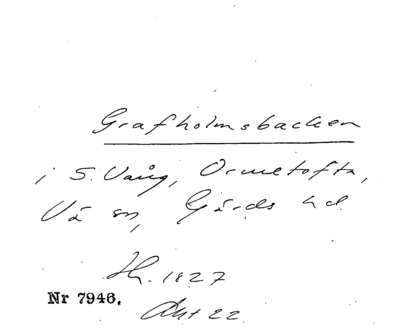 Grafholmsbacken
i S. Vång, Ormetofta,
Vä sn, Gärds hd.
Hh. 1827
Nr 7946.
Akt 22